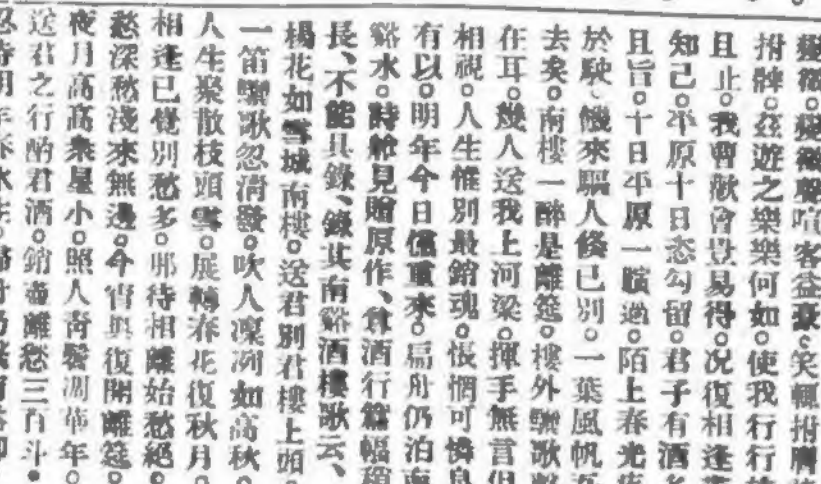 拊牌。茲遊之樂樂何如。使我行行
且止。我曾歡會豈易得。況復相逢
知己。平原十日恣勾留。君子有酒
且旨。十日平原一瞚過。陌上春光
於駛、饑來驅人倏已別。一葉風帆
去矣。南樓一醉是離筵。樓外驪歌
在耳。幾人送我上河梁。揮手無言但
相視。人生惟別最銷魂。悵惘可憐
有以。明年今日儻重來。扁舟仍泊南
谿水。時舲見贈原作、貧酒行篇幅稍
長、不能具錄、錄其南谿酒樓歌云、
楊花如雪城南樓。送君別君樓上頭。
一笛驪歌忽淸發。吹人凜冽如高秋。
人生聚散枝頭雪。展轉春花復秋月。
相逢已覺別愁多。那待相離始愁絕。
愁深愁淺來無邊。今宵與復開離筵。
夜月高高衆星小。照人靑鬢凋神年。
送君之行酌君酒。銷盡離愁三百斗。